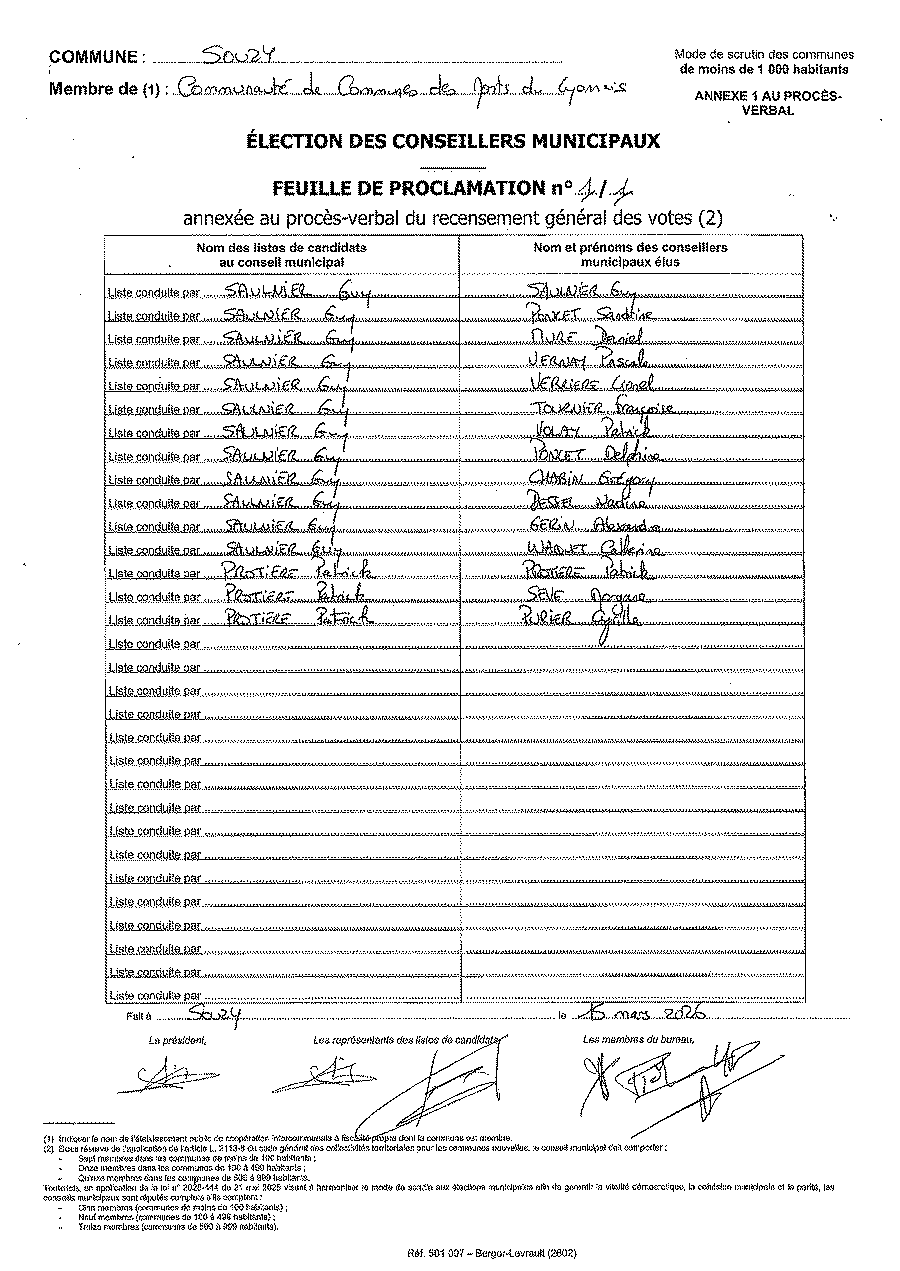 COMMUNE : Souzy
Mode de scrutin des communes
de moins de 1 000 habitants
Membre de (1) : Communauté de Communes des Monts du Lyonnais
ANNEXE 1 AU PROCÈS-
VERBAL
ÉLECTION DES CONSEILLERS MUNICIPAUX
FEUILLE DE PROCLAMATION n° 1/1
annexée au procès-verbal du recensement général des votes (2)
Nom des listes de candidats
au conseil municipal
Nom et prénoms des conseillers
municipaux élus
Liste conduite par SAULNIER Guy SAULNIER Guy
Liste conduite par SAULNIER Guy PONCET Sandrine
Liste conduite par SAULNIER Guy MURE Daniel
Liste conduite par SAULNIER Guy VERNAY Pascale
Liste conduite par SAULNIER Guy VERRIERE Lionel
Liste conduite par SAULNIER Guy TOURNIER Françoise
Liste conduite par SAULNIER Guy VOLAY Patrick
Liste conduite par SAULNIER Guy PONCET Delphine
Liste conduite par SAULNIER Guy CHABIN Grégory
Liste conduite par SAULNIER Guy Nadine
Liste conduite par SAULNIER Guy GERIN Alexandre
Liste conduite par SAULNIER Guy Catherine
Liste conduite par PROTIERE Patrick PROTIERE Patrick
Liste conduite par PROTIERE Patrick SEVE
Liste conduite par PROTIERE Patrick PURIER
Liste conduite par
Liste conduite par
Liste conduite par
Liste conduite par
Liste conduite par
Liste conduite par
Liste conduite par
Liste conduite par
Liste conduite par
Liste conduite par
Liste conduite par
Liste conduite par
Liste conduite par
Liste conduite par
Liste conduite par
Liste conduite par
Fait à Souzy le 15 mars 2026
Le président,
Les représentants des listes de candidats
Les membres du bureau,
(1) Indiquer le nom de l'établissement public de coopération intercommunale à fiscalité propre dont la commune est membre.
(2) Sous réserve de l'application de l'article L. 2113-8 du code général des collectivités territoriales pour les communes nouvelles, le conseil municipal doit comporter :
- Sept membres dans les communes de moins de 100 habitants ;
- Onze membres dans les communes de 100 à 499 habitants ;
- Quinze membres dans les communes de 500 à 999 habitants.
Toutefois, en application de la loi n° 2025-444 du 21 mai 2025 visant à harmoniser le mode de scrutin aux élections municipales afin de garantir la vitalité démocratique, la cohésion municipale et la parité, les
conseils municipaux sont réputés complets s'ils comptent :
- Cinq membres (communes de moins de 100 habitants) ;
- Neuf membres (communes de 100 à 499 habitants) ;
- Treize membres (communes de 500 à 999 habitants).
Réf. 501 007 – Berger-Levrault (2602)